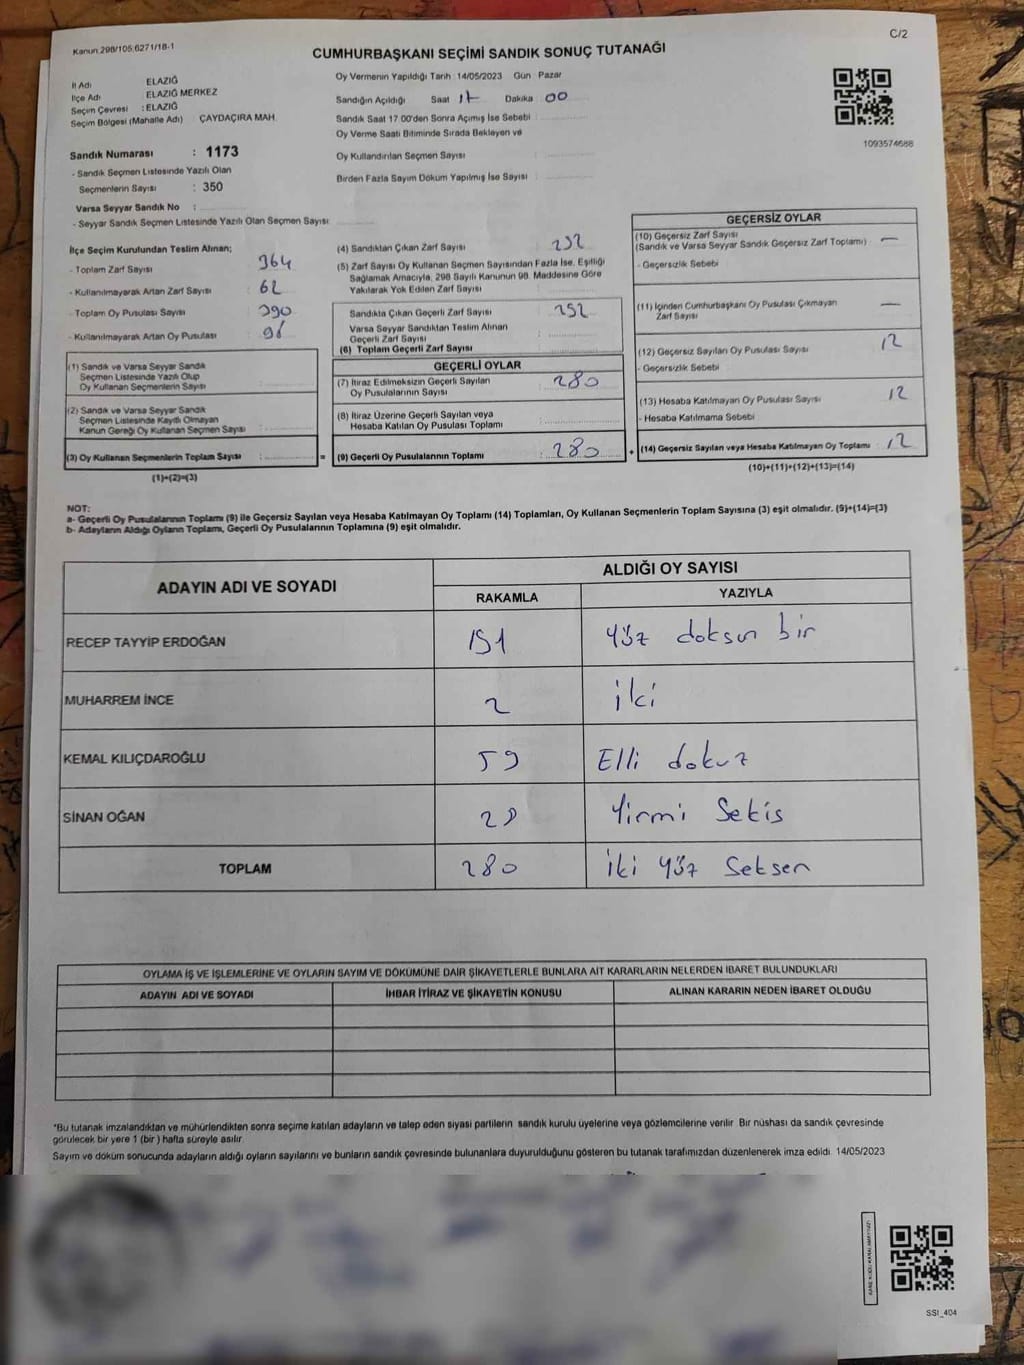 Kanun 298/105,6271/18-1
C/2
CUMHURBAŞKANI SEÇİMİ SANDIK SONUÇ TUTANAĞI
İl Adı ELAZIĞ
İlçe Adı ELAZIĞ MERKEZ
Seçim Çevresi : ELAZIĞ
Seçim Bölgesi (Mahalle Adı) ÇAYDAÇIRA MAH.
Oy Vermenin Yapıldığı Tarih 14/05/2023 Gün Pazar
Sandığın Açıldığı Saat 17 Dakika 00
Sandık Saat 17.00'den Sonra Açımış İse Sebebi
Oy Verme Saati Bitiminde Sırada Bekleyen ve
Oy Kullandırılan Seçmen Sayısı :
Birden Fazla Sayım Döküm Yapılmış İse Sayısı :
1093574688
Sandık Numarası : 1173
- Sandık Seçmen Listesinde Yazılı Olan
Seçmenlerin Sayısı : 350
Varsa Seyyar Sandık No :
- Seyyar Sandık Seçmen Listesinde Yazılı Olan Seçmen Sayısı
İlçe Seçim Kurulundan Teslim Alınan;
- Toplam Zarf Sayısı 364
- Kullanılmayarak Artan Zarf Sayısı : 62
- Toplam Oy Pusulası Sayısı : 390
- Kullanılmayarak Artan Oy Pusulası :
(1) Sandık ve Varsa Seyyar Sandık
Seçmen Listesinde Yazılı Olup
Oy Kullanan Seçmenlerin Sayısı :
(2) Sandık ve Varsa Seyyar Sandık
Seçmen Listesinde Kayıtlı Olmayan
Kanun Gereği Oy Kullanan Seçmen Sayısı :
(3) Oy Kullanan Seçmenlerin Toplam Sayısı : =
(1)+(2)=(3)
(4) Sandıktan Çıkan Zarf Sayısı : 292
(5) Zarf Sayısı Oy Kullanan Seçmen Sayısından Fazla İse, Eşitliği
Sağlamak Amacıyla, 298 Sayılı Kanunun 98. Maddesine Göre
Yakılarak Yok Edilen Zarf Sayısı :
Sandıkta Çıkan Geçerli Zarf Sayısı : 292
Varsa Seyyar Sandıktan Teslim Alınan
Geçerli Zarf Sayısı :
(6) Toplam Geçerli Zarf Sayısı
GEÇERLİ OYLAR
(7) İtiraz Edilmeksizin Geçerli Sayılan
Oy Pusulalarının Sayısı : 280
(8) İtiraz Üzerine Geçerli Sayılan veya
Hesaba Katılan Oy Pusulası Toplamı :
(9) Geçerli Oy Pusulalarının Toplamı : 280 +
GEÇERSİZ OYLAR
(10) Geçersiz Zarf Sayısı
(Sandık ve Varsa Seyyar Sandık Geçersiz Zarf Toplamı) : —
- Geçersizlik Sebebi
(11) İçinden Cumhurbaşkanı Oy Pusulası Çıkmayan
Zarf Sayısı : —
(12) Geçersiz Sayılan Oy Pusulası Sayısı : 12
- Geçersizlik Sebebi
(13) Hesaba Katılmayan Oy Pusulası Sayısı : 12
- Hesaba Katılmama Sebebi
(14) Geçersiz Sayılan veya Hesaba Katılmayan Oy Toplamı : 12
(10)+(11)+(12)+(13)=(14)
NOT:
a- Geçerli Oy Pusulalarının Toplamı (9) ile Geçersiz Sayılan veya Hesaba Katılmayan Oy Toplamı (14) Toplamları, Oy Kullanan Seçmenlerin Toplam Sayısına (3) eşit olmalıdır. (9)+(14)=(3)
b- Adayların Aldığı Oyların Toplamı, Geçerli Oy Pusulalarının Toplamına (9) eşit olmalıdır.
ADAYIN ADI VE SOYADI
ALDIĞI OY SAYISI
RAKAMLA YAZIYLA
RECEP TAYYİP ERDOĞAN 191 Yüz doksan bir
MUHARREM İNCE 2 iki
KEMAL KILIÇDAROĞLU 59 Elli dokuz
SİNAN OĞAN 28 Yirmi Sekis
TOPLAM 280 iki yüz Seksen
OYLAMA İŞ VE İŞLEMLERİNE VE OYLARIN SAYIM VE DÖKÜMÜNE DAİR ŞİKAYETLERLE BUNLARA AİT KARARLARIN NELERDEN İBARET BULUNDUKLARI
ADAYIN ADI VE SOYADI İHBAR İTİRAZ VE ŞİKAYETİN KONUSU ALINAN KARARIN NEDEN İBARET OLDUĞU
*Bu tutanak imzalandıktan ve mühürlendikten sonra seçime katılan adayların ve talep eden siyasi partilerin sandık kurulu üyelerine veya gözlemcilerine verilir. Bir nüshası da sandık çevresinde
görülecek bir yere 1 (bir) hafta süreyle asılır.
Sayım ve döküm sonucunda adayların aldığı oyların sayılarını ve bunların sandık çevresinde bulunanlara duyurulduğunu gösteren bu tutanak tarafımızdan düzenlenerek imza edildi. 14/05/2023
SSI_404